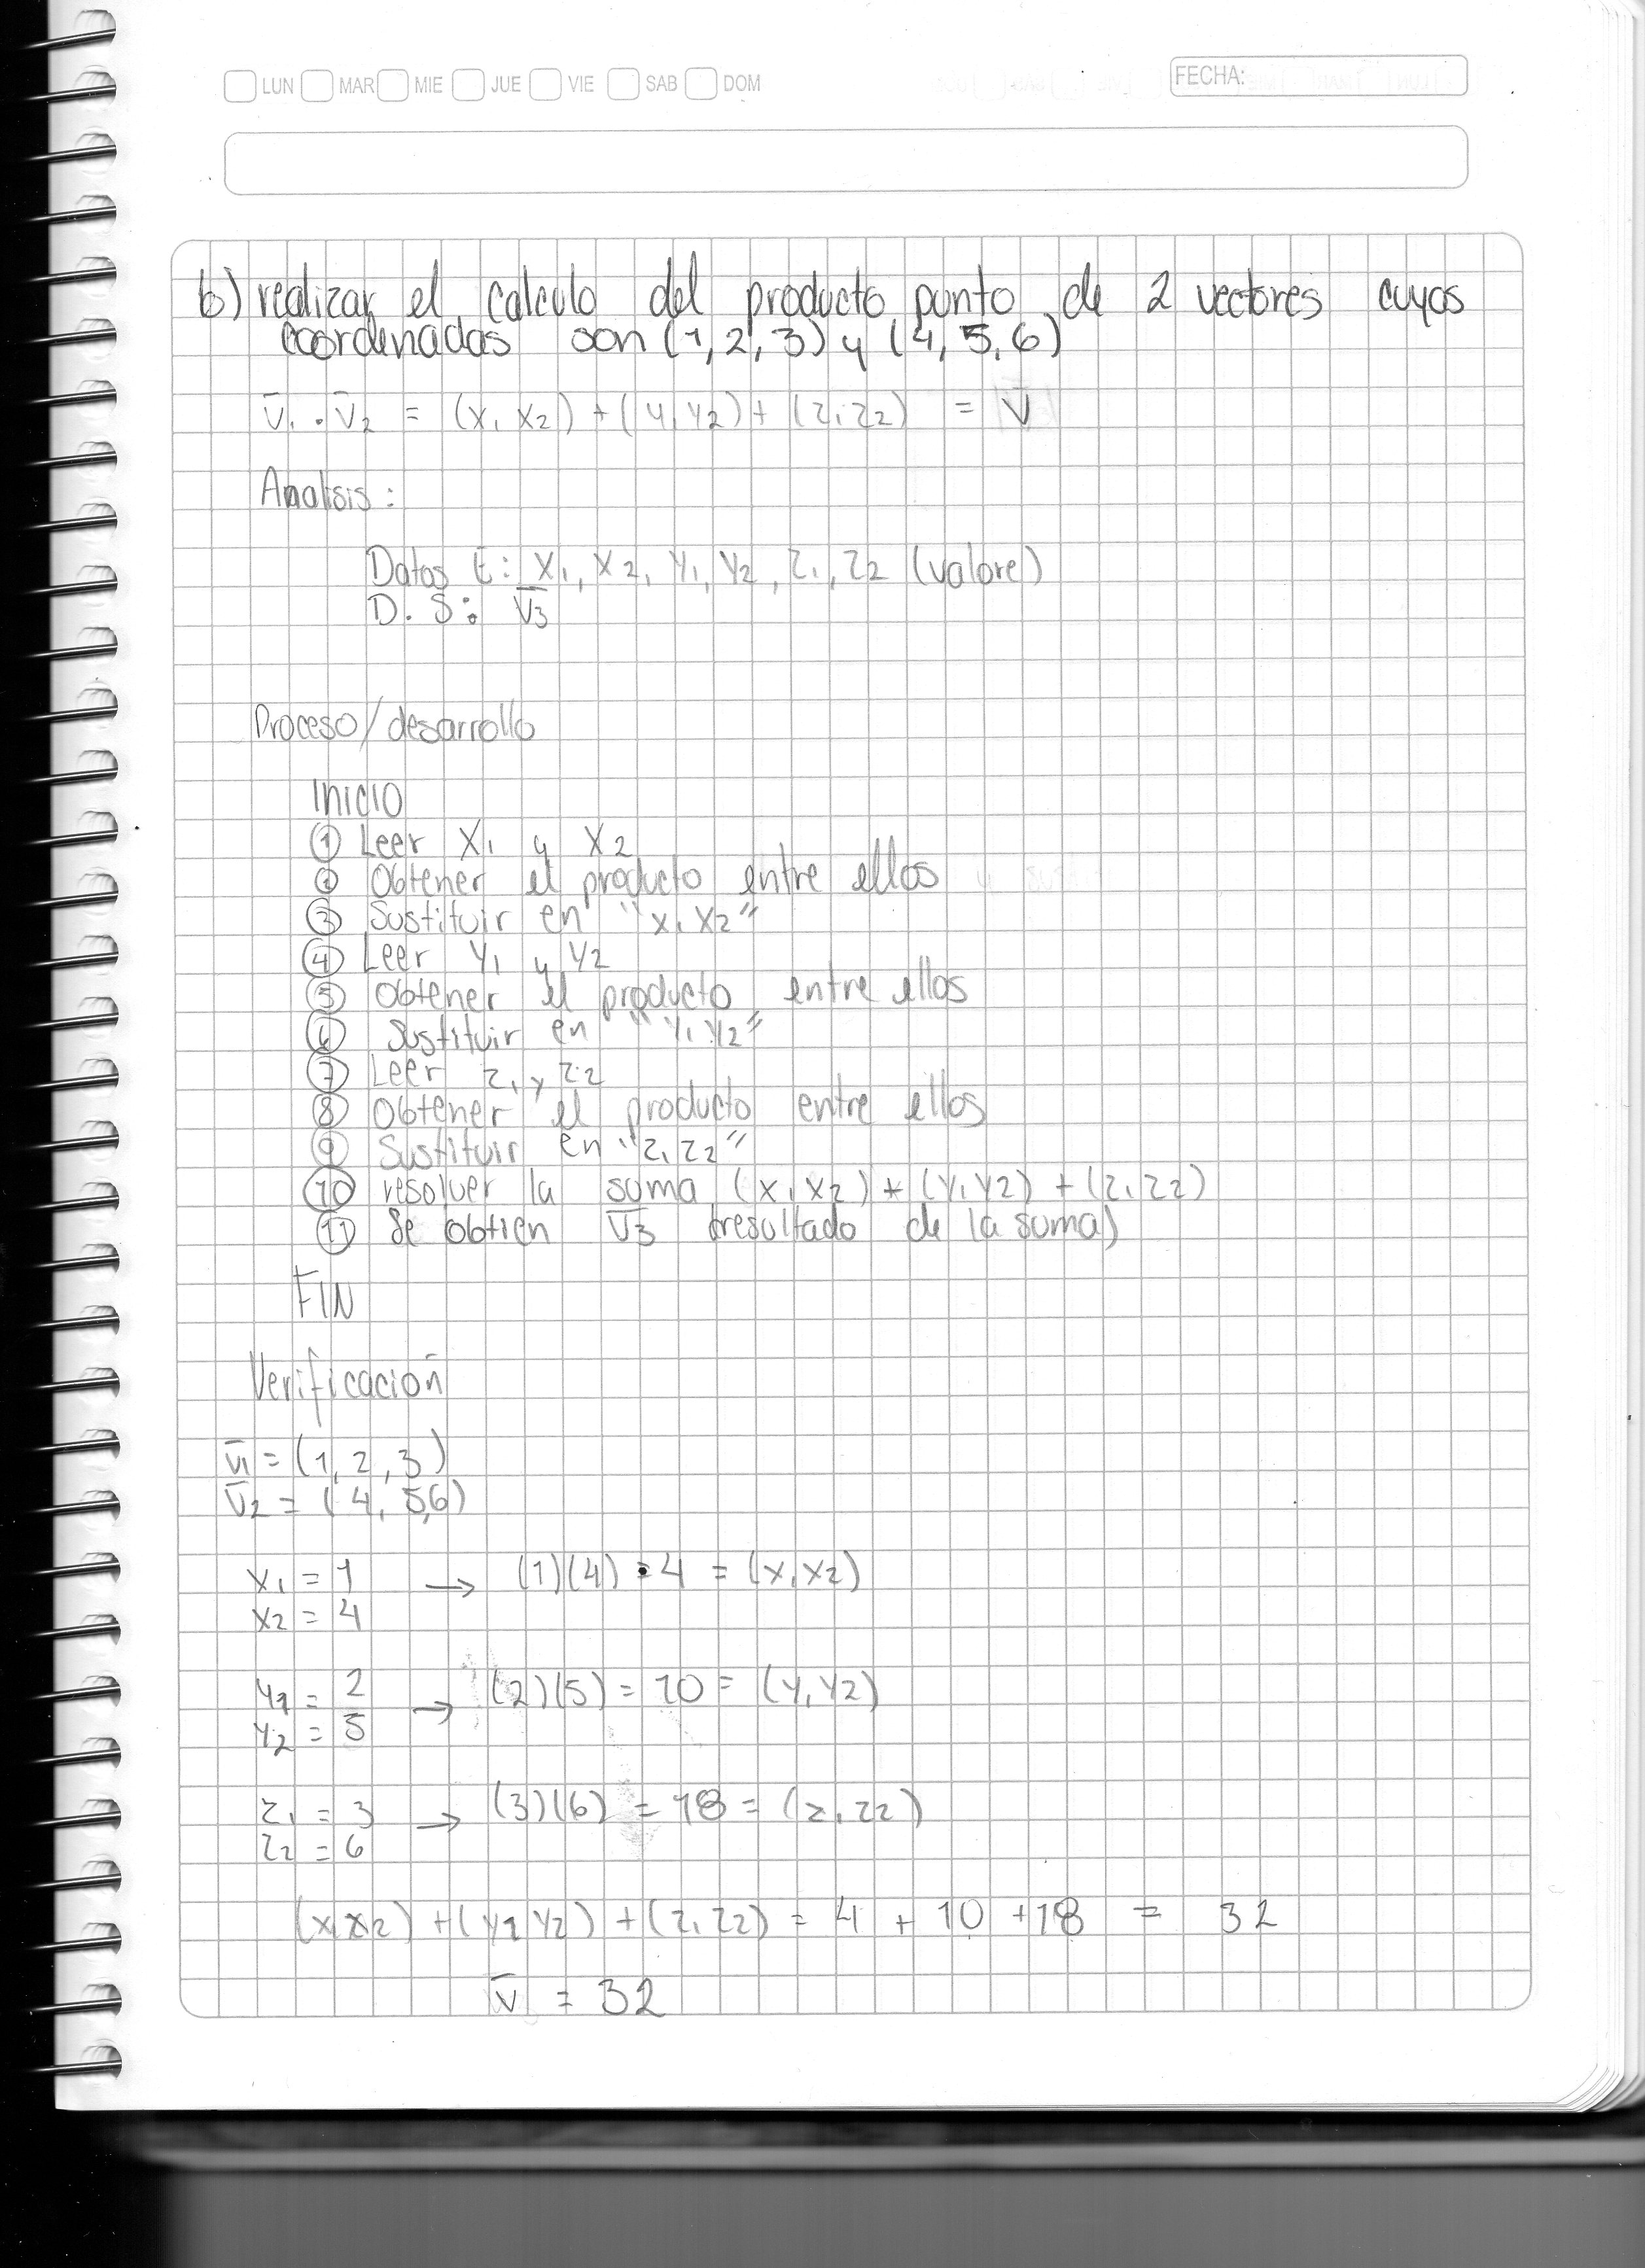 LUN MAR MIE JUE VIE SAB DOM FECHA:
b) realizar el calculo del producto punto de 2 vectores cuyas
coordenadas son (1, 2, 3) y (4, 5, 6)
v̅₁ · v̅₂ = (x₁ x₂) + (y₁ y₂) + (z₁ z₂) = v̅
Analisis:
Datos E: x₁, x₂, y₁, y₂, z₁, z₂ (valore)
D. S: v̅₃
Proceso/desarrollo
Inicio
① Leer x₁ y x₂
② Obtener el producto entre ellos
③ Sustituir en "x₁ x₂"
④ Leer y₁ y y₂
⑤ Obtener el producto entre ellos
⑥ Sustituir en "y₁ y₂"
⑦ Leer z₁ y z₂
⑧ Obtener el producto entre ellos
⑨ Sustituir en "z₁ z₂"
⑩ resolver la suma (x₁ x₂) + (y₁ y₂) + (z₁ z₂)
⑪ Se obtien v̅₃ (resultado de la suma)
FIN
Verificación
v̅₁ = (1, 2, 3)
v̅₂ = (4, 5,6)
x₁ = 1 → (1)(4) = 4 = (x₁ x₂)
x₂ = 4
y₁ = 2 → (2)(5) = 10 = (y₁ y₂)
y₂ = 5
z₁ = 3 → (3)(6) = 18 = (z₁ z₂)
z₂ = 6
(x₁ x₂) + (y₁ y₂) + (z₁ z₂) = 4 + 10 + 18 = 32
v̅ = 32